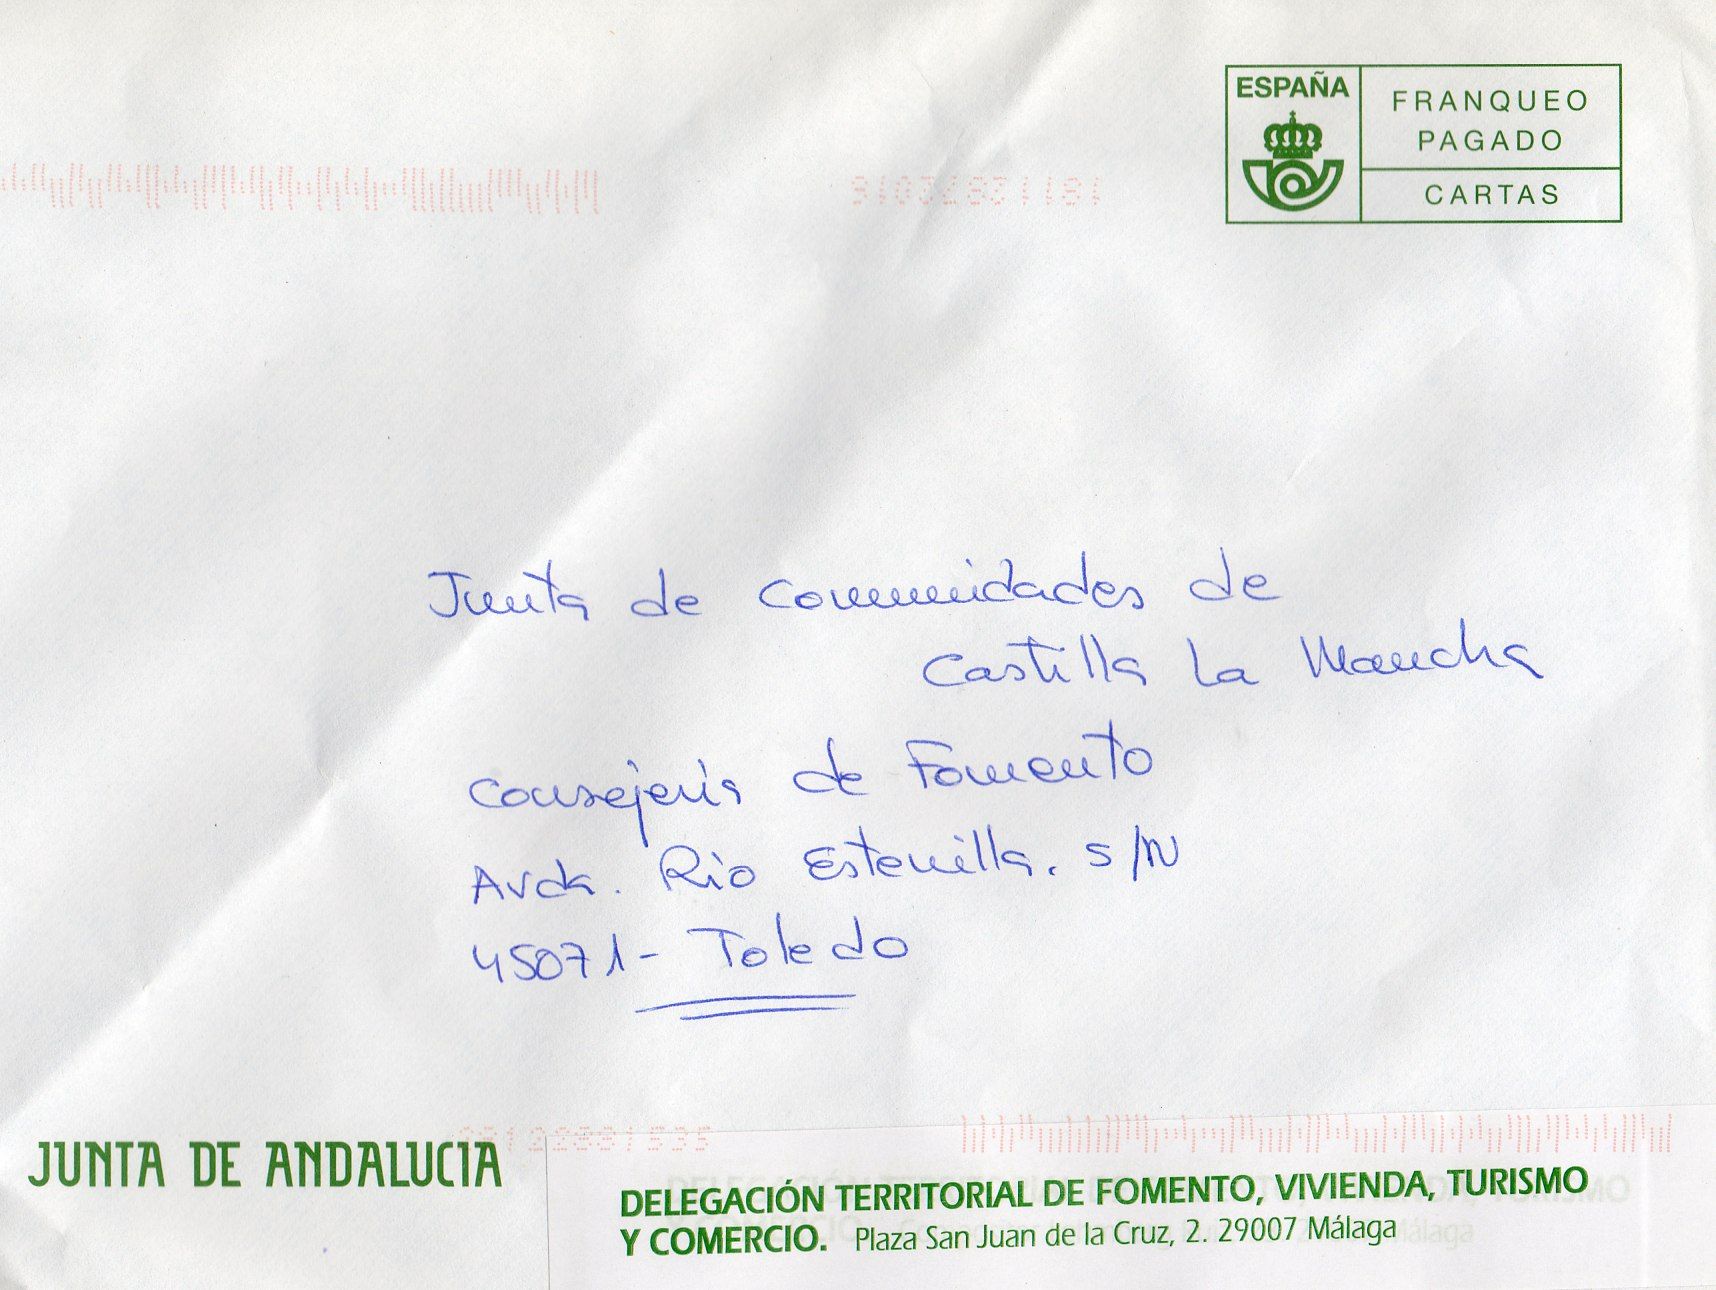 ESPAÑA
FRANQUEO
PAGADO
CARTAS
Junta de Comunidades de
Castilla La Mancha
Consejería de Fomento
Avda. Rio Estenilla. S/N
45071- Toledo
JUNTA DE ANDALUCIA
DELEGACIÓN TERRITORIAL DE FOMENTO, VIVIENDA, TURISMO
Y COMERCIO. Plaza San Juan de la Cruz, 2. 29007 Málaga